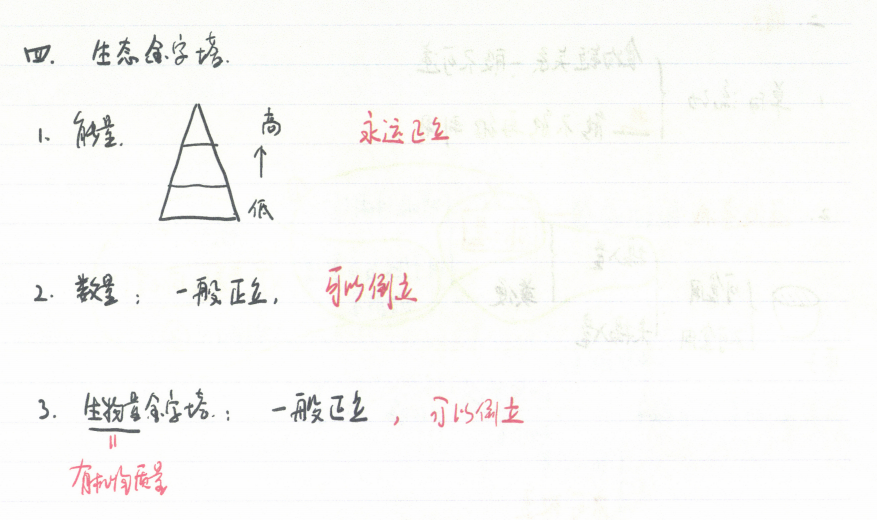 四. 生态金字塔.
1. 能量. 高 永远正立
↑
低
2. 数量: 一般正立, 可以倒立
3. 生物量金字塔.: 一般正立, 可以倒立
=
有机物质量